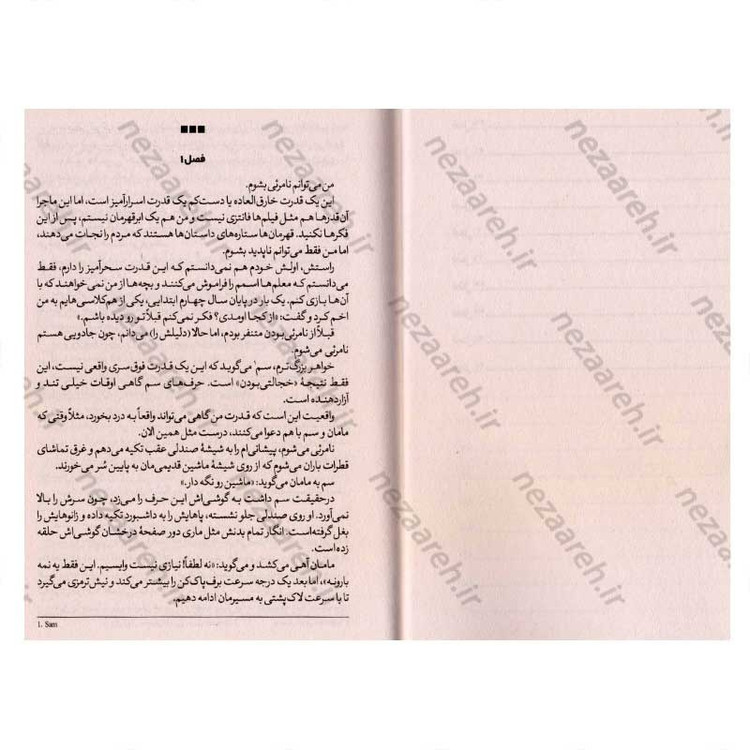 ■■■
فصل ۱
من می‌توانم نامرئی بشوم.
این یک قدرت خارق‌العاده یا دست‌کم یک قدرت اسرارآمیز است، اما این ماجرا
آن‌قدرها هم مثل فیلم‌ها فانتزی نیست و من هم یک ابرقهرمان نیستم، پس از این
فکرها نکنید. قهرمان‌ها ستاره‌های داستان‌ها هستند که مردم را نجات می‌دهند،
اما من فقط می‌توانم ناپدید بشوم.
راستش، اولش خودم هم نمی‌دانستم که این قدرت سحرآمیز را دارم، فقط
می‌دانستم که معلم‌ها اسمم را فراموش می‌کنند و بچه‌ها از من نمی‌خواهند که با
آن‌ها بازی کنم. یک بار در پایان سال چهارم ابتدایی، یکی از هم‌کلاسی‌هایم به من
اخم کرد و گفت: «از کجا اومدی؟ فکر نمی‌کنم قبلاً تو رو دیده باشم.»
قبلاً از نامرئی‌بودن متنفر بودم، اما حالا (دلیلش را) می‌دانم، چون جادویی هستم
نامرئی می‌شوم.
خواهر بزرگ‌ترم، سم۱ می‌گوید که این یک قدرت فوق‌سری واقعی نیست، این
فقط نتیجهٔ «خجالتی‌بودن» است. حرف‌های سم گاهی اوقات خیلی تند و
آزاردهنده است.
واقعیت این است که قدرت من گاهی می‌تواند واقعاً به درد بخورد، مثلاً وقتی که
مامان و سم با هم دعوا می‌کنند، درست مثل همین الان.
نامرئی می‌شوم، پیشانی‌ام را به شیشهٔ صندلی عقب تکیه می‌دهم و غرق تماشای
قطرات باران می‌شوم که از روی شیشهٔ ماشین قدیمی‌مان به پایین سُر می‌خورند.
سم به مامان می‌گوید: «ماشین رو نگه دار.»
درحقیقت سم داشت به گوشی‌اش این حرف را می‌زد، چون سرش را بالا
نمی‌آورد. او روی صندلی جلو نشسته، پاهایش را به داشبورد تکیه داده و زانوهایش را
بغل گرفته‌است. انگار تمام بدنش مثل ماری دور صفحهٔ درخشان گوشی‌اش حلقه
زده است.
مامان آهی می‌کشد و می‌گوید: «نه لطفاً! نیازی نیست وایسیم. این فقط یه نمه
بارونه»، اما بعد یک درجه سرعت برف‌پاک‌کن را بیشتر می‌کند و نیش‌ترمزی می‌گیرد
تا با سرعت لاک‌پشتی به مسیرمان ادامه دهیم.
1. Sam
nezaareh.ir
nezaareh.ir
nezaareh.ir
nezaareh.ir
nezaareh.ir
nezaareh.ir
nezaareh.ir
nezaareh.ir
nezaareh.ir